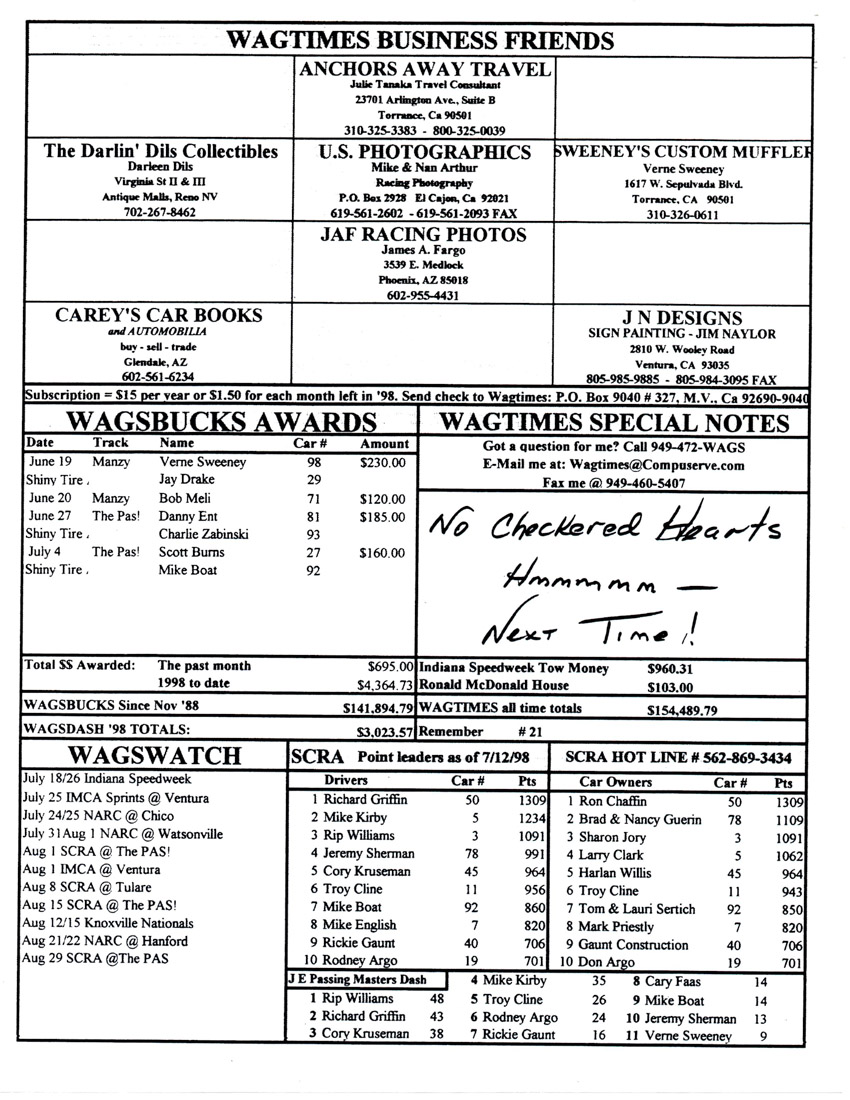 WAGTIMES BUSINESS FRIENDS
ANCHORS AWAY TRAVEL
Julie Tanaka Travel Consultant
23701 Arlington Ave., Suite B
Torrance, Ca 90501
310-325-3383 - 800-325-0039
The Darlin' Dils Collectibles
Darleen Dils
Virginia St II & III
Antique Malls, Reno NV
702-267-8462
U.S. PHOTOGRAPHICS
Mike & Nan Arthur
Racing Photography
P.O. Box 2928 El Cajon, Ca 92021
619-561-2602 - 619-561-2093 FAX
SWEENEY'S CUSTOM MUFFLER
Verne Sweeney
1617 W. Sepulvada Blvd.
Torrance, CA 90501
310-326-0611
JAF RACING PHOTOS
James A. Fargo
3539 E. Medlock
Phoenix, AZ 85018
602-955-4431
CAREY'S CAR BOOKS
and AUTOMOBILIA
buy - sell - trade
Glendale, AZ
602-561-6234
J N DESIGNS
SIGN PAINTING - JIM NAYLOR
2810 W. Wooley Road
Ventura, CA 93035
805-985-9885 - 805-984-3095 FAX
Subscription = $15 per year or $1.50 for each month left in '98. Send check to Wagtimes: P.O. Box 9040 # 327, M.V., Ca 92690-9040
WAGSBUCKS AWARDS
Date Track Name Car # Amount
June 19 Manzy Verne Sweeney 98 $230.00
Shiny Tire Jay Drake 29
June 20 Manzy Bob Meli 71 $120.00
June 27 The Pas! Danny Ent 81 $185.00
Shiny Tire Charlie Zabinski 93
July 4 The Pas! Scott Burns 27 $160.00
Shiny Tire Mike Boat 92
WAGTIMES SPECIAL NOTES
Got a question for me? Call 949-472-WAGS
E-Mail me at: Wagtimes@Compuserve.com
Fax me @ 949-460-5407
No Checkered Hearts
Hmmmmmm —
Next Time!
Total $$ Awarded: The past month $695.00
1998 to date $4,364.73
WAGSBUCKS Since Nov '88 $141,894.79
WAGSDASH '98 TOTALS: $3,023.57
Indiana Speedweek Tow Money $960.31
Ronald McDonald House $103.00
WAGTIMES all time totals $154,489.79
Remember # 21
WAGSWATCH
July 18/26 Indiana Speedweek
July 25 IMCA Sprints @ Ventura
July 24/25 NARC @ Chico
July 31Aug 1 NARC @ Watsonville
Aug 1 SCRA @ The PAS!
Aug 1 IMCA @ Ventura
Aug 8 SCRA @ Tulare
Aug 15 SCRA @ The PAS!
Aug 12/15 Knoxville Nationals
Aug 21/22 NARC @ Hanford
Aug 29 SCRA @The PAS
SCRA Point leaders as of 7/12/98
SCRA HOT LINE # 562-869-3434
Drivers Car # Pts
1 Richard Griffin 50 1309
2 Mike Kirby 5 1234
3 Rip Williams 3 1091
4 Jeremy Sherman 78 991
5 Cory Kruseman 45 964
6 Troy Cline 11 956
7 Mike Boat 92 860
8 Mike English 7 820
9 Rickie Gaunt 40 706
10 Rodney Argo 19 701
Car Owners Car # Pts
1 Ron Chaffin 50 1309
2 Brad & Nancy Guerin 78 1109
3 Sharon Jory 3 1091
4 Larry Clark 5 1062
5 Harlan Willis 45 964
6 Troy Cline 11 943
7 Tom & Lauri Sertich 92 850
8 Mark Priestly 7 820
9 Gaunt Construction 40 706
10 Don Argo 19 701
J E Passing Masters Dash
1 Rip Williams 48
2 Richard Griffin 43
3 Cory Kruseman 38
4 Mike Kirby 35
5 Troy Cline 26
6 Rodney Argo 24
7 Rickie Gaunt 16
8 Cary Faas 14
9 Mike Boat 14
10 Jeremy Sherman 13
11 Verne Sweeney 9